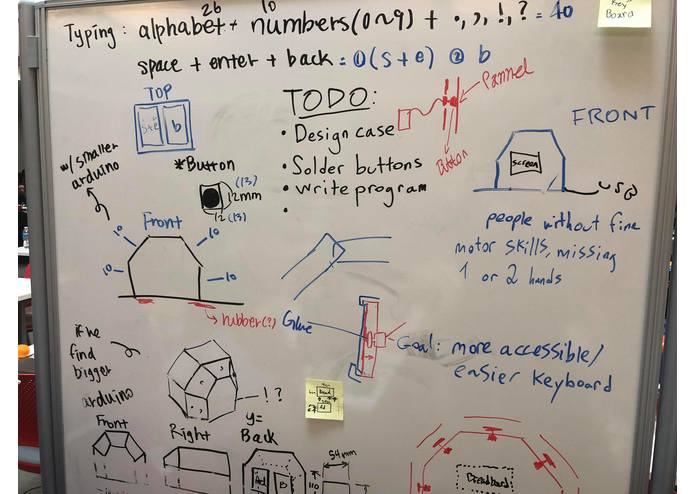 26 10
Typing: alphabet + numbers(0~9) + ., ,, !, ? = 40
space + enter + back = ① (s+e) ② b
Key
Board
TOP
s+e b
TODO:
• Design case
• Solder buttons
• write program
•
Pannel
Button
FRONT
screen
USB
w/ smaller
arduino
*Button
(13)
12mm
12 (13)
Front
10 10
10 10
rubber(?)
people without fine
motor skills, missing
1 or 2 hands
Glue
Goal: more accessible/
easier keyboard
if we
find
bigger
arduino
!?
Front
Right
y=
Back
54mm
110
B
Breadboard